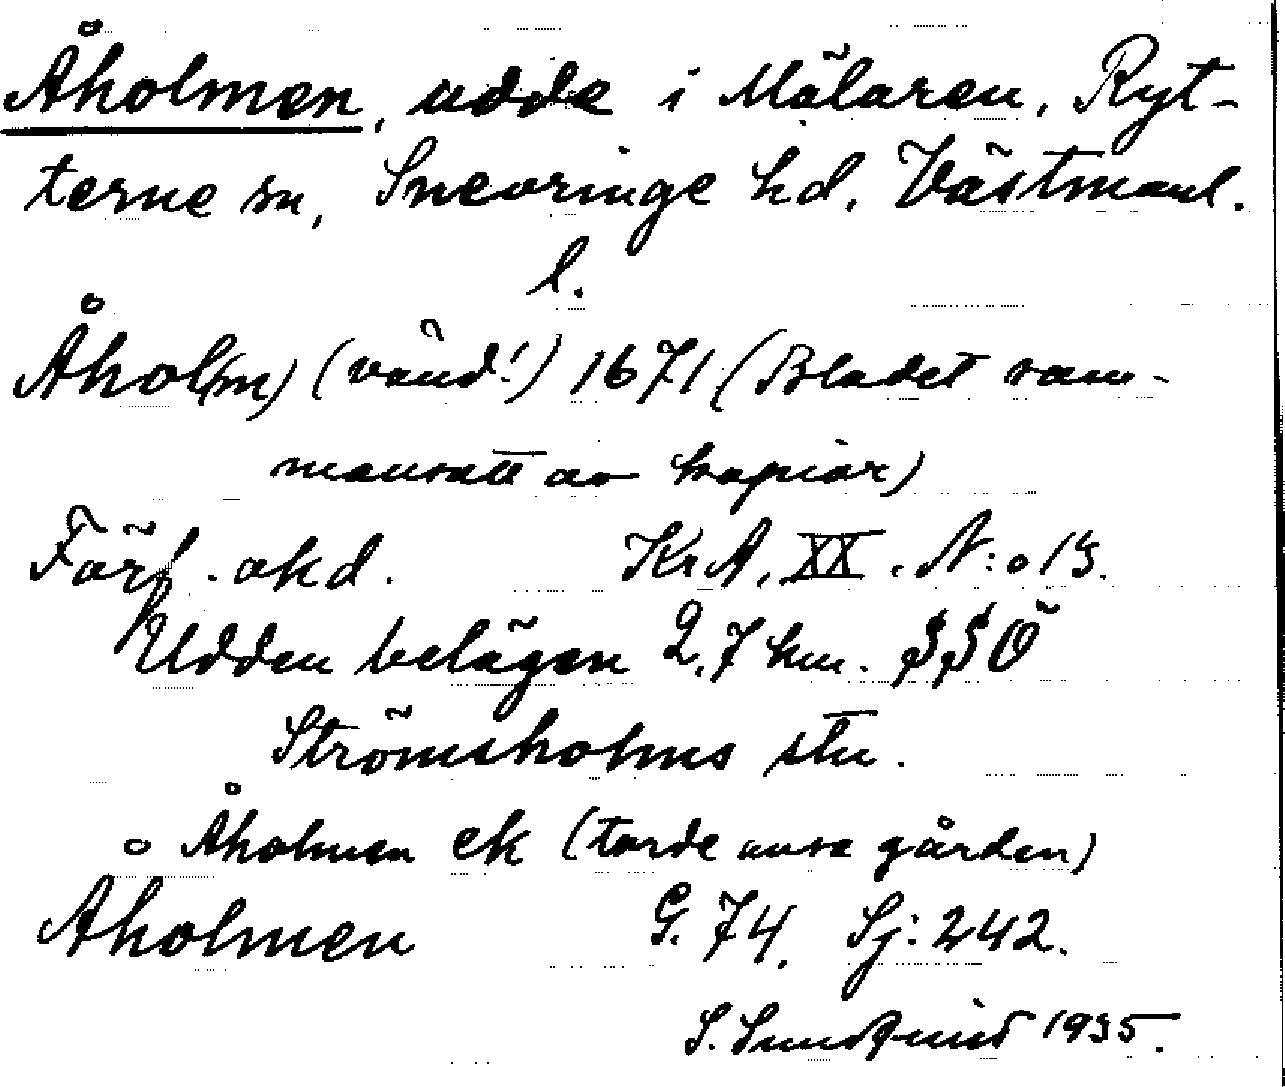 Åholmen, udde i Mälaren, Ryt-
terne sn, Snevringe hd, Västmanl.
l.
Åhol(m) (vänd!) 1671 (Bladet sam-
mansatt av kopior)
Förf. okd. KrA, XX. N:o 13.
Udden belägen 2,7 km. SSÖ
Strömsholms stn.
o Åholmen ek (torde avse gården)
Åholmen G. 74. Sj: 242.
S. Sundqvist 1935.